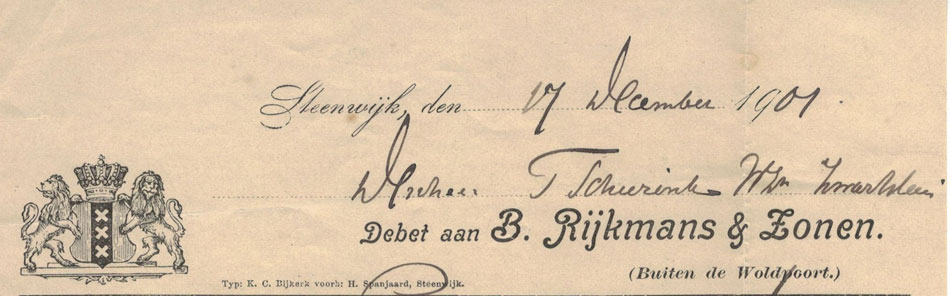 Steenwijk, den 17 December 1901.
T Scheerink
Debet aan B. Rijkmans & Zonen.
(Buiten de Woldpoort.)
Typ: K. C. Bijkerk voorh: H. Spanjaard, Steenwijk.